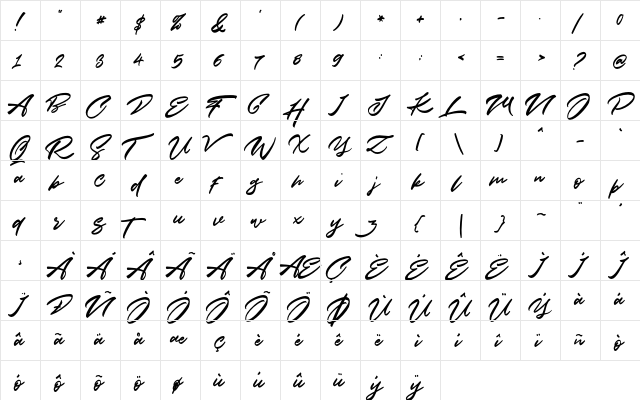 ! " # $ % & ' ( ) * + , - . / 0
1 2 3 4 5 6 7 8 9 : ; < = > ? @
A B C D E F G H I J K L M N O P
Q R S T U V W X Y Z [ \ ] ^ _ `
a b c d e f g h i j k l m n o p
q r s t u v w x y z { | } ~ ¨ ¸
À Á Â Ã Ä Å Æ Ç È É Ê Ë Ì Í Î
Ï Ð Ñ Ò Ó Ô Õ Ö Ø Ù Ú Û Ü Ý à á
â ã ä å æ ç è é ê ë ì í î ï ñ ò
ó ô õ ö ø ù ú û ü ý ÿ